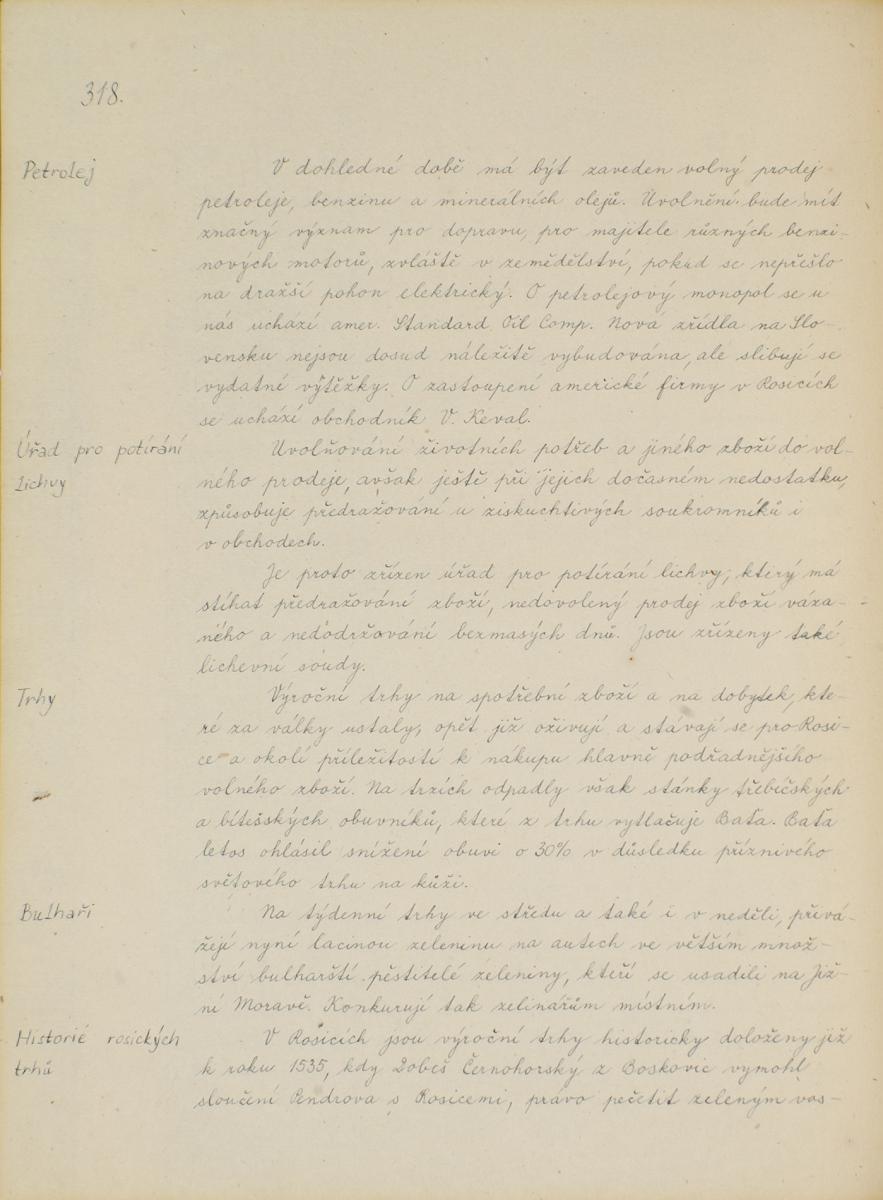 318.
Petrolej
V dohledné době má být zaveden volný prodej
petroleje, benzinu a minerálních olejů. Uvolnění bude mít
značný význam pro dopravu, pro majitele různých benzi-
nových motorů, zvláště v zemědělství, pokud se nepřešlo
na dražší pohon elektrický. O petrolejový monopol se u
nás uchází amer. Standard Oil Comp. Nová zřídla na Slo-
vensku nejsou dosud náležitě vybudována, ale slibují se
vydatné výtěžky. O zastoupení americké firmy v Rosicích
se uchází obchodník V. Keval.
Úřad pro potírání
lichvy
Uvolňování životních potřeb a jiného zboží do vol-
ného prodeje, avšak ještě při jejich dočasném nedostatku,
způsobuje předražování u ziskuchtivých soukromníků i
v obchodech.
Je proto zřízen úřad pro potírání lichvy, který má
stíhat předražování zboží, nedovolený prodej zboží váza-
ného a nedodržování bezmasých dnů. Jsou zřízeny také
lichevní soudy.
Trhy
Výroční trhy na spotřební zboží a na dobytek, kte-
ré za války ustaly, opět již oživují a stávají se pro Rosi-
ce a okolí příležitostí k nákupu hlavně podřadnějšího
volného zboží. Na trzích odpadly však stánky třebíčských
a bítešských obuvníků, které z trhu vytlačuje Baťa. Baťa
letos ohlásil snížení obuvi o 30% v důsledku příznivého
světového trhu na kůži.
Bulhaři
Na týdenní trhy ve středu a také i v neděli, přivá-
žejí nyní lacinou zeleninu na autech ve větším množ-
ství bulharští pěstitelé zeleniny, kteří se usadili na Již-
ní Moravě. Konkurují tak zelinářům místním.
Historie rosických
trhů
V Rosicích jsou výroční trhy historicky doloženy již
k roku 1535, kdy Dobeš Černohorský z Boskovic vymohl
sloučení Pendrova s Rosicemi, právo pečetit zeleným vos-